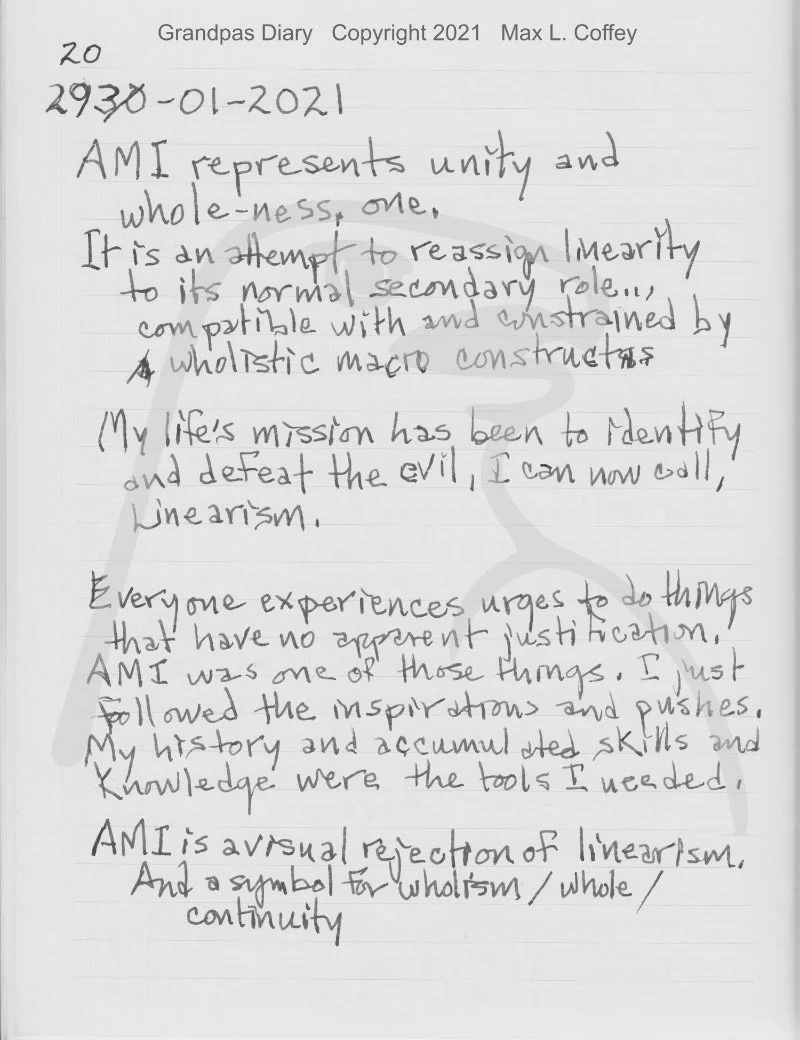 Grandpas Diary Copyright 2021 Max L. Coffey
20
2930-01-2021
AMI represents unity and
whole-ness, one.
It is an attempt to reassign linearity
to its normal secondary role..,
compatible with and constrained by
wholistic macro constructs
My life's mission has been to identify
and defeat the evil, I can now call,
Linearism.
Everyone experiences urges to do things
that have no apparent justification.
AMI was one of those things. I just
followed the inspirations and pushes.
My history and accumulated skills and
Knowledge were the tools I needed.
AMI is a visual rejection of linearism.
And a symbol for wholism / whole /
continuity